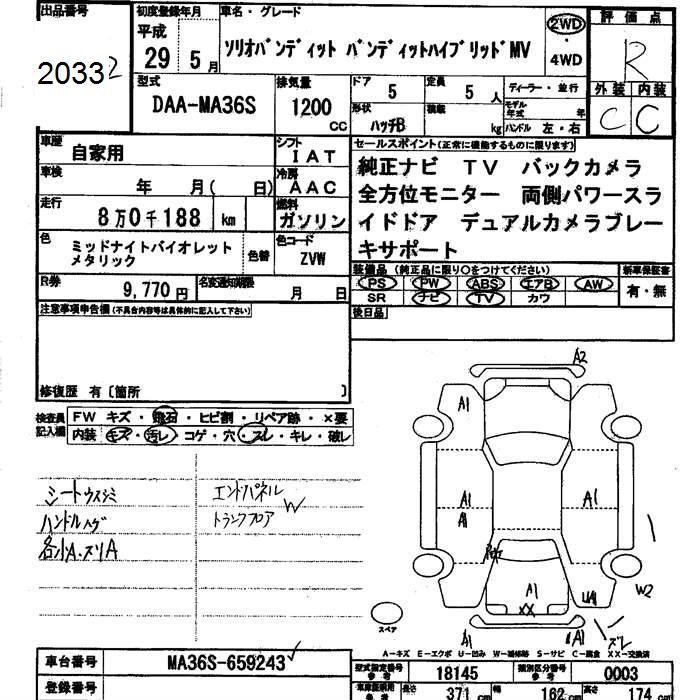 出品番号
20332
初度登録年月
平成
29 5月
車名・グレード
ソリオバンディット バンディットハイブリッドMV
2WD
・
4WD
評価点
R
外装 内装
C C
型式
DAA-MA36S
排気量
1200
CC
ドア
5
定員
5 人
形状
ハッチB
積載
kg
ディーラー・並行
モデル年式 年
ハンドル 左・右
車歴
自家用
シフト
IAT
車検
年 月( 日)
冷房
AAC
走行
8万0千188 km
燃料
ガソリン
色
ミッドナイトバイオレット
メタリック
色替
色コード
ZVW
R券
9,770円
名変通知期限
月 日
セールスポイント(正常に機能するものに限ります)
純正ナビ TV バックカメラ
全方位モニター 両側パワースラ
イドドア デュアルカメラブレー
キサポート
装備品(純正品に限り○をつけてください)
PS PW ABS エアB AW
SR ナビ TV カワ
新車保証書
有・無
後日品
注意事項申告欄(不具合内容等は具体的に記入して下さい)
修復歴 有〔箇所 〕
検査員
記入欄
FW キズ・飛石・ヒビ割・リペア跡・×要
内装 キズ・汚レ・コゲ・穴・スレ・キレ・破レ
シートウスジミ
ハンドルハゲ
各小A・ズリA
エンドパネル
トランクフロア
W
A2
A1
A1
A1
A1
A1
XX
UA1
W2
A1
A1
ズレ
スペア
A-キズ E-エクボ U-凹み W-補修跡 S-サビ C-腐食 XX-交換済
車台番号
MA36S-659243
登録番号
型式指定番号
参考
18145
類別区分番号
参考
0003
長さ
371 cm
幅
162 cm
高さ
174 cm